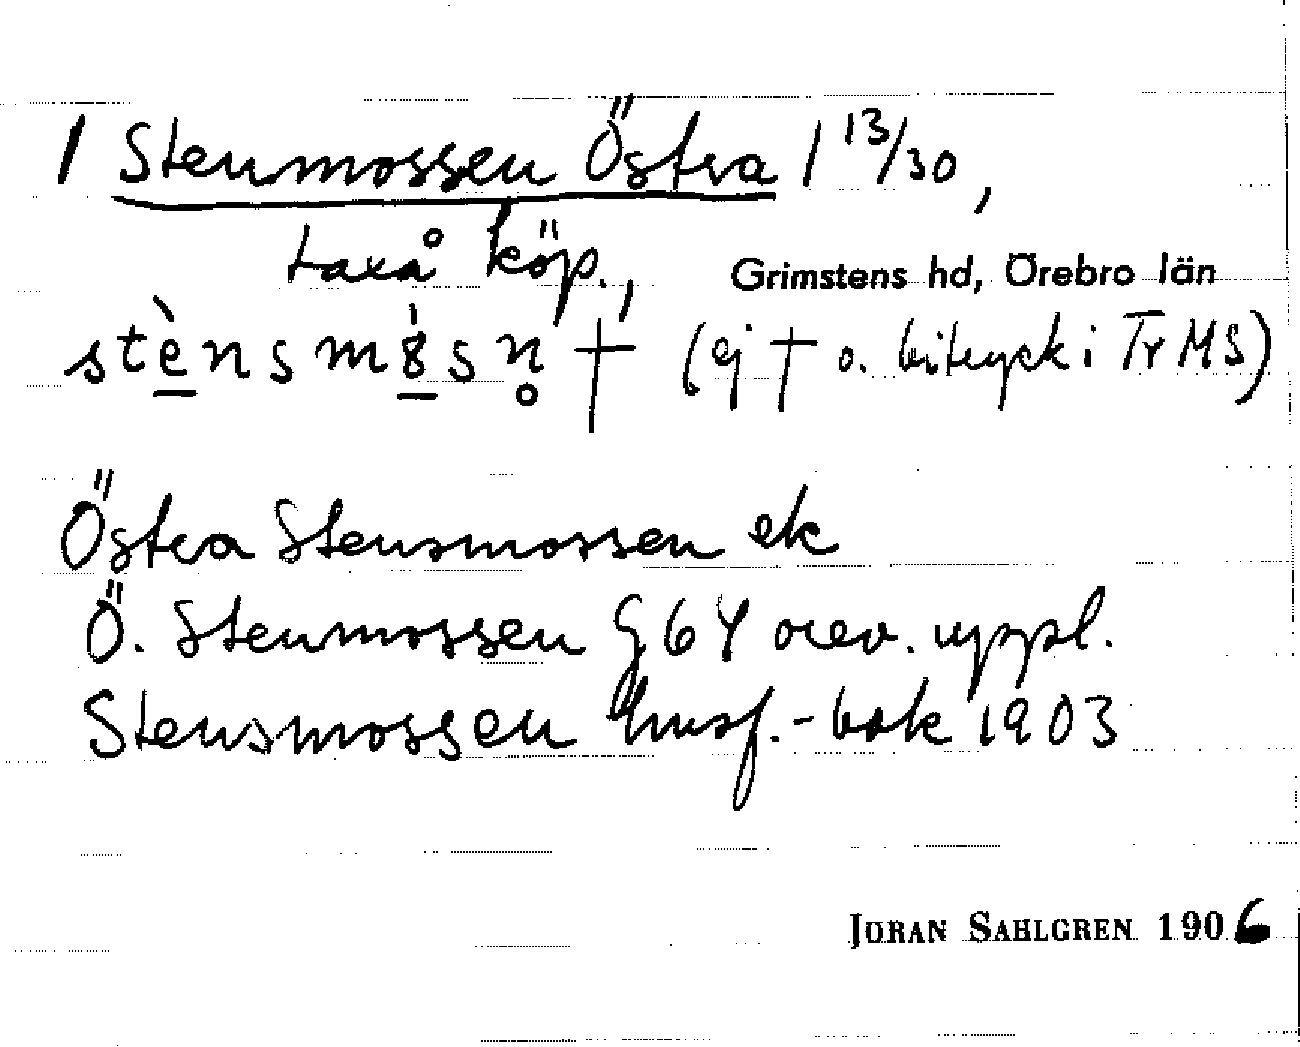 1 Stenmossen Östra 1 13/30,
taxå köp., Grimstens hd, Örebro län
stènsm8̀sn̥ † (ej † o. bitryck i Tr MS)
Östra Stensmossen ek
Ö. Stenmossen G64 orev. uppl.
Stensmossen husf.-bok 1903
JÖRAN SAHLGREN 1906